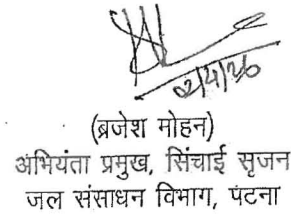 02/4/26
(ब्रजेश मोहन)
अभियंता प्रमुख, सिंचाई सृजन
जल संसाधन विभाग, पटना